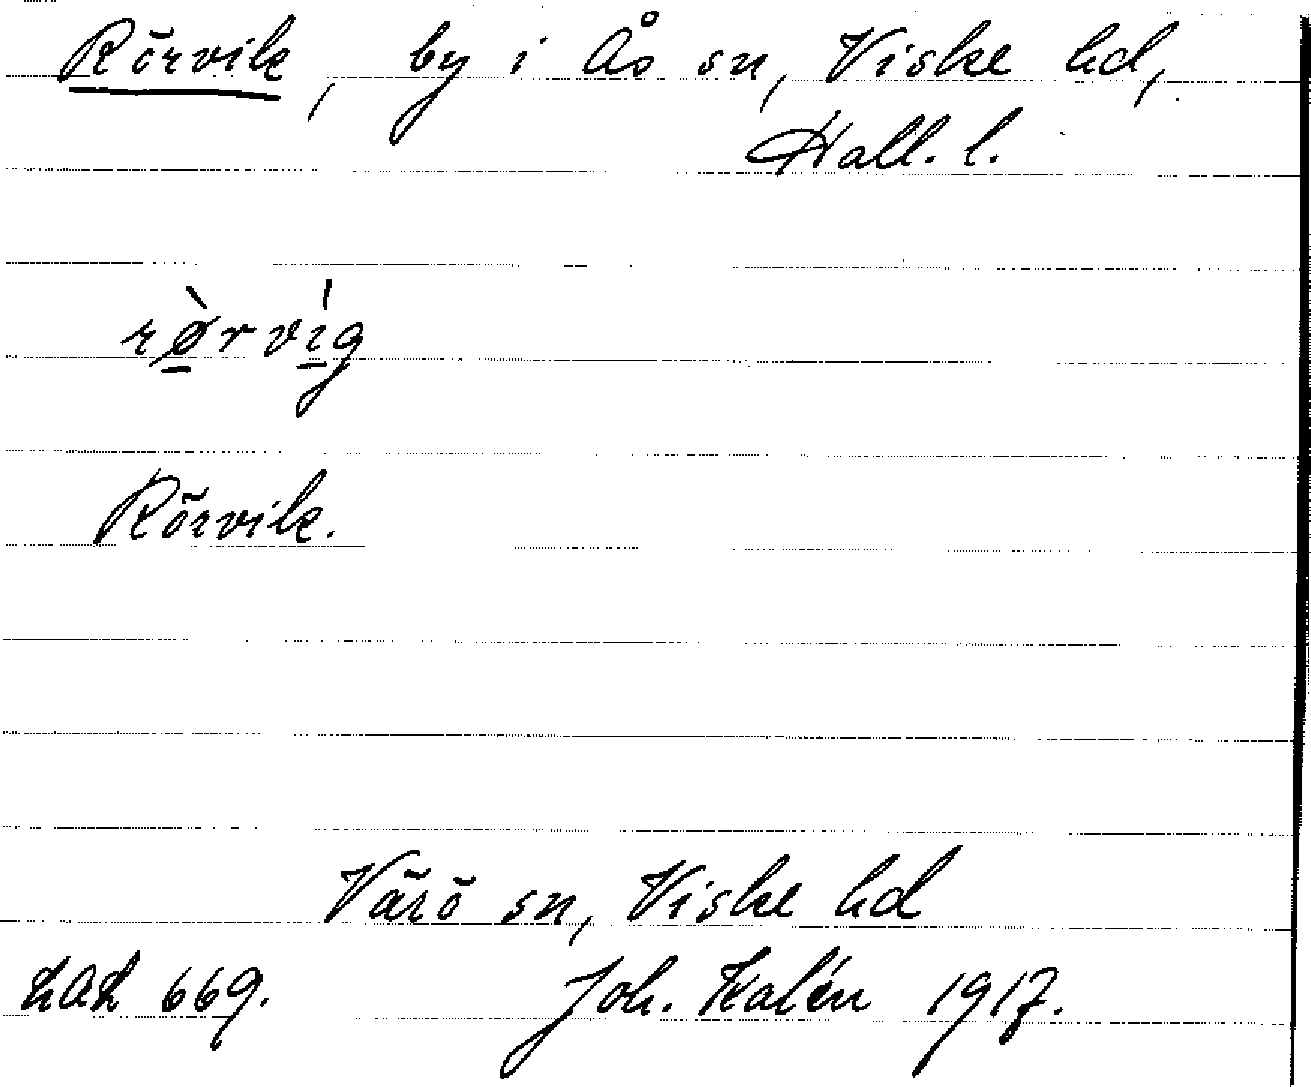 Rörvik, by i Ås sn, Viske hd,
Hall. l.
rø̱̀rvı̱́g
Rörvik.
Värö sn, Viske hd
LAL 669. Joh. Kalén 1917.